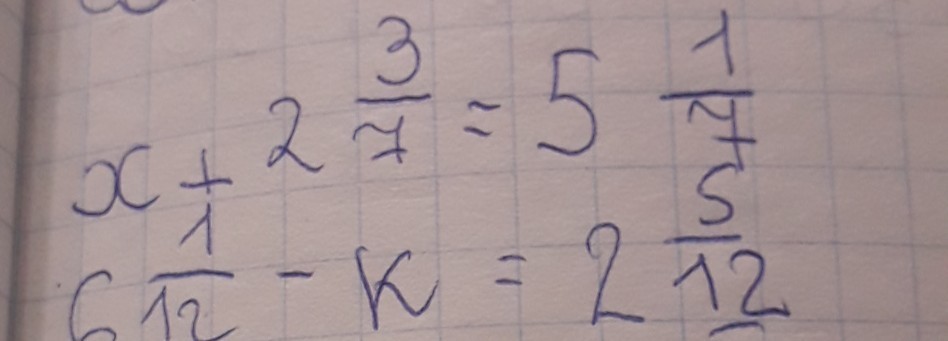 x + 2 3/7 = 5 1/7
6 1/12 - K = 2 5/12